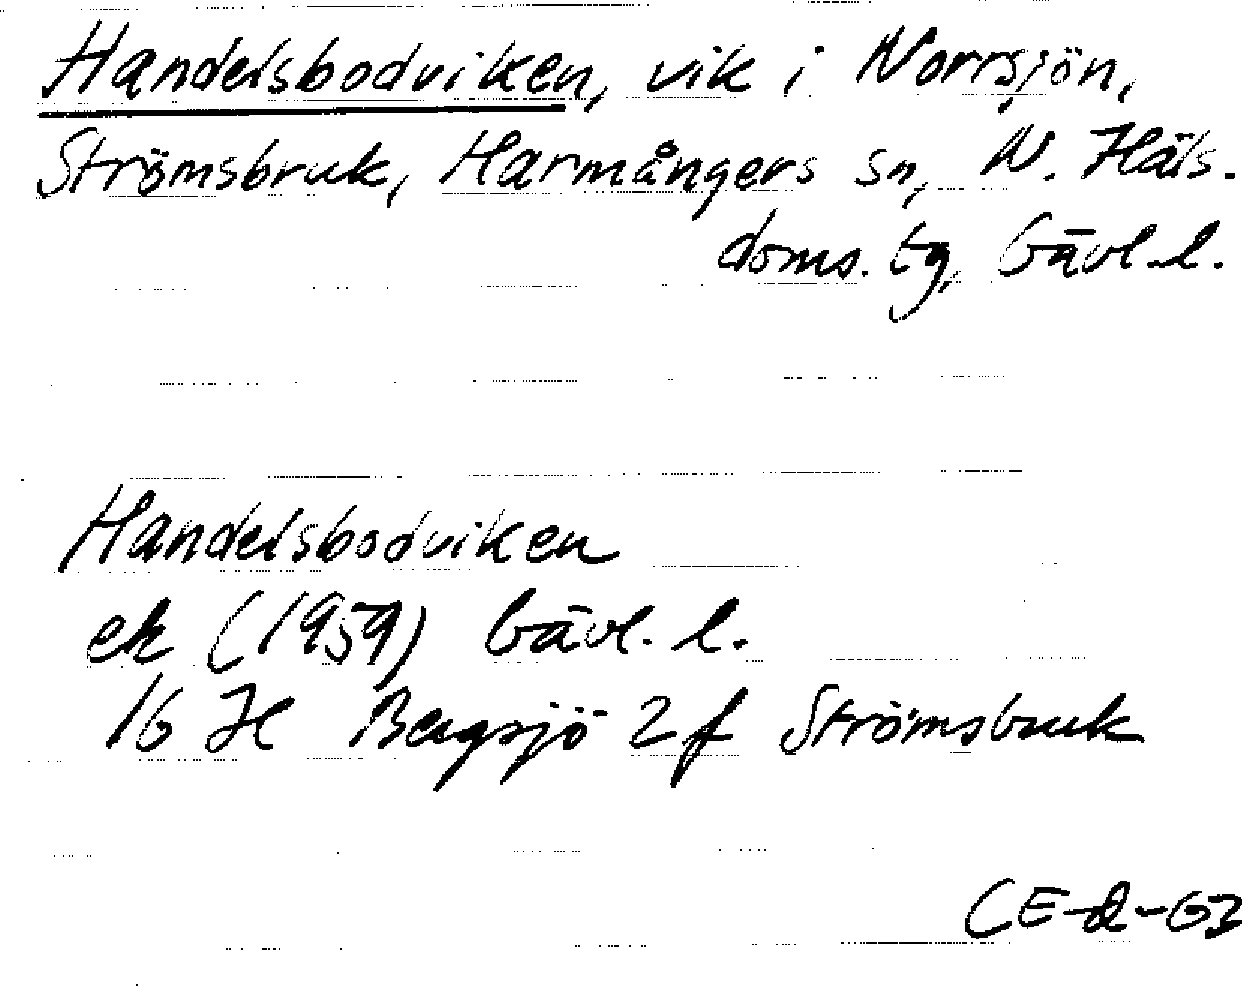 Handelsbodviken, vik i Norrsjön,
Strömsbruk, Harmångers sn, N. Häls.
doms. tg, Gävl. l.
Handelsbodviken
ek (1959) Gävl. l.
16 H Bergsjö 2 f Strömsbruk